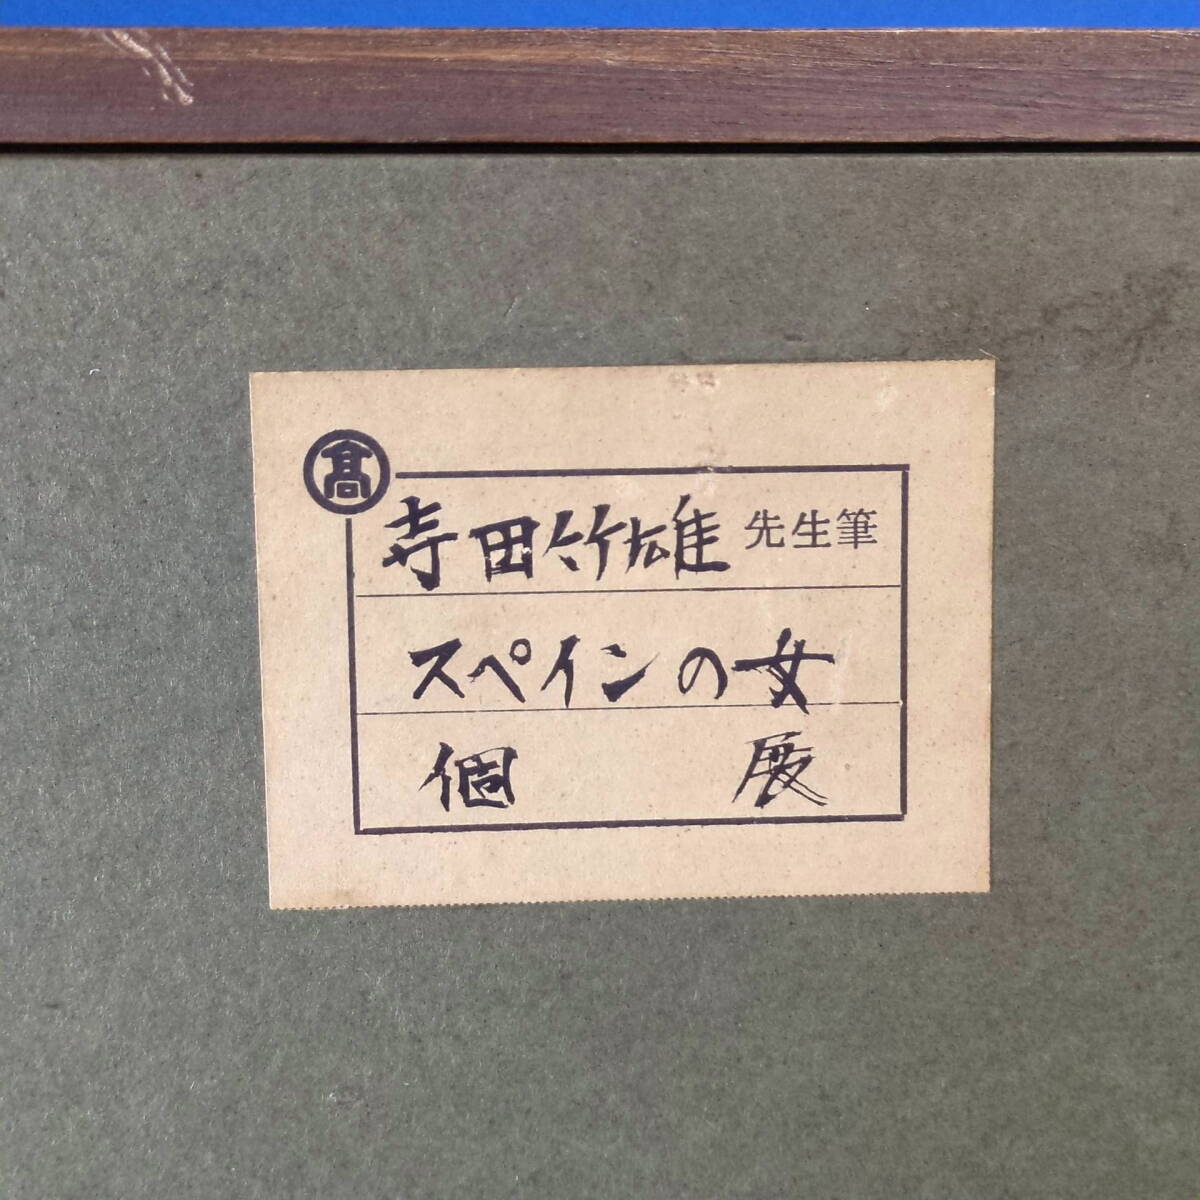 髙
寺田竹雄 先生筆
スペインの女
個 展